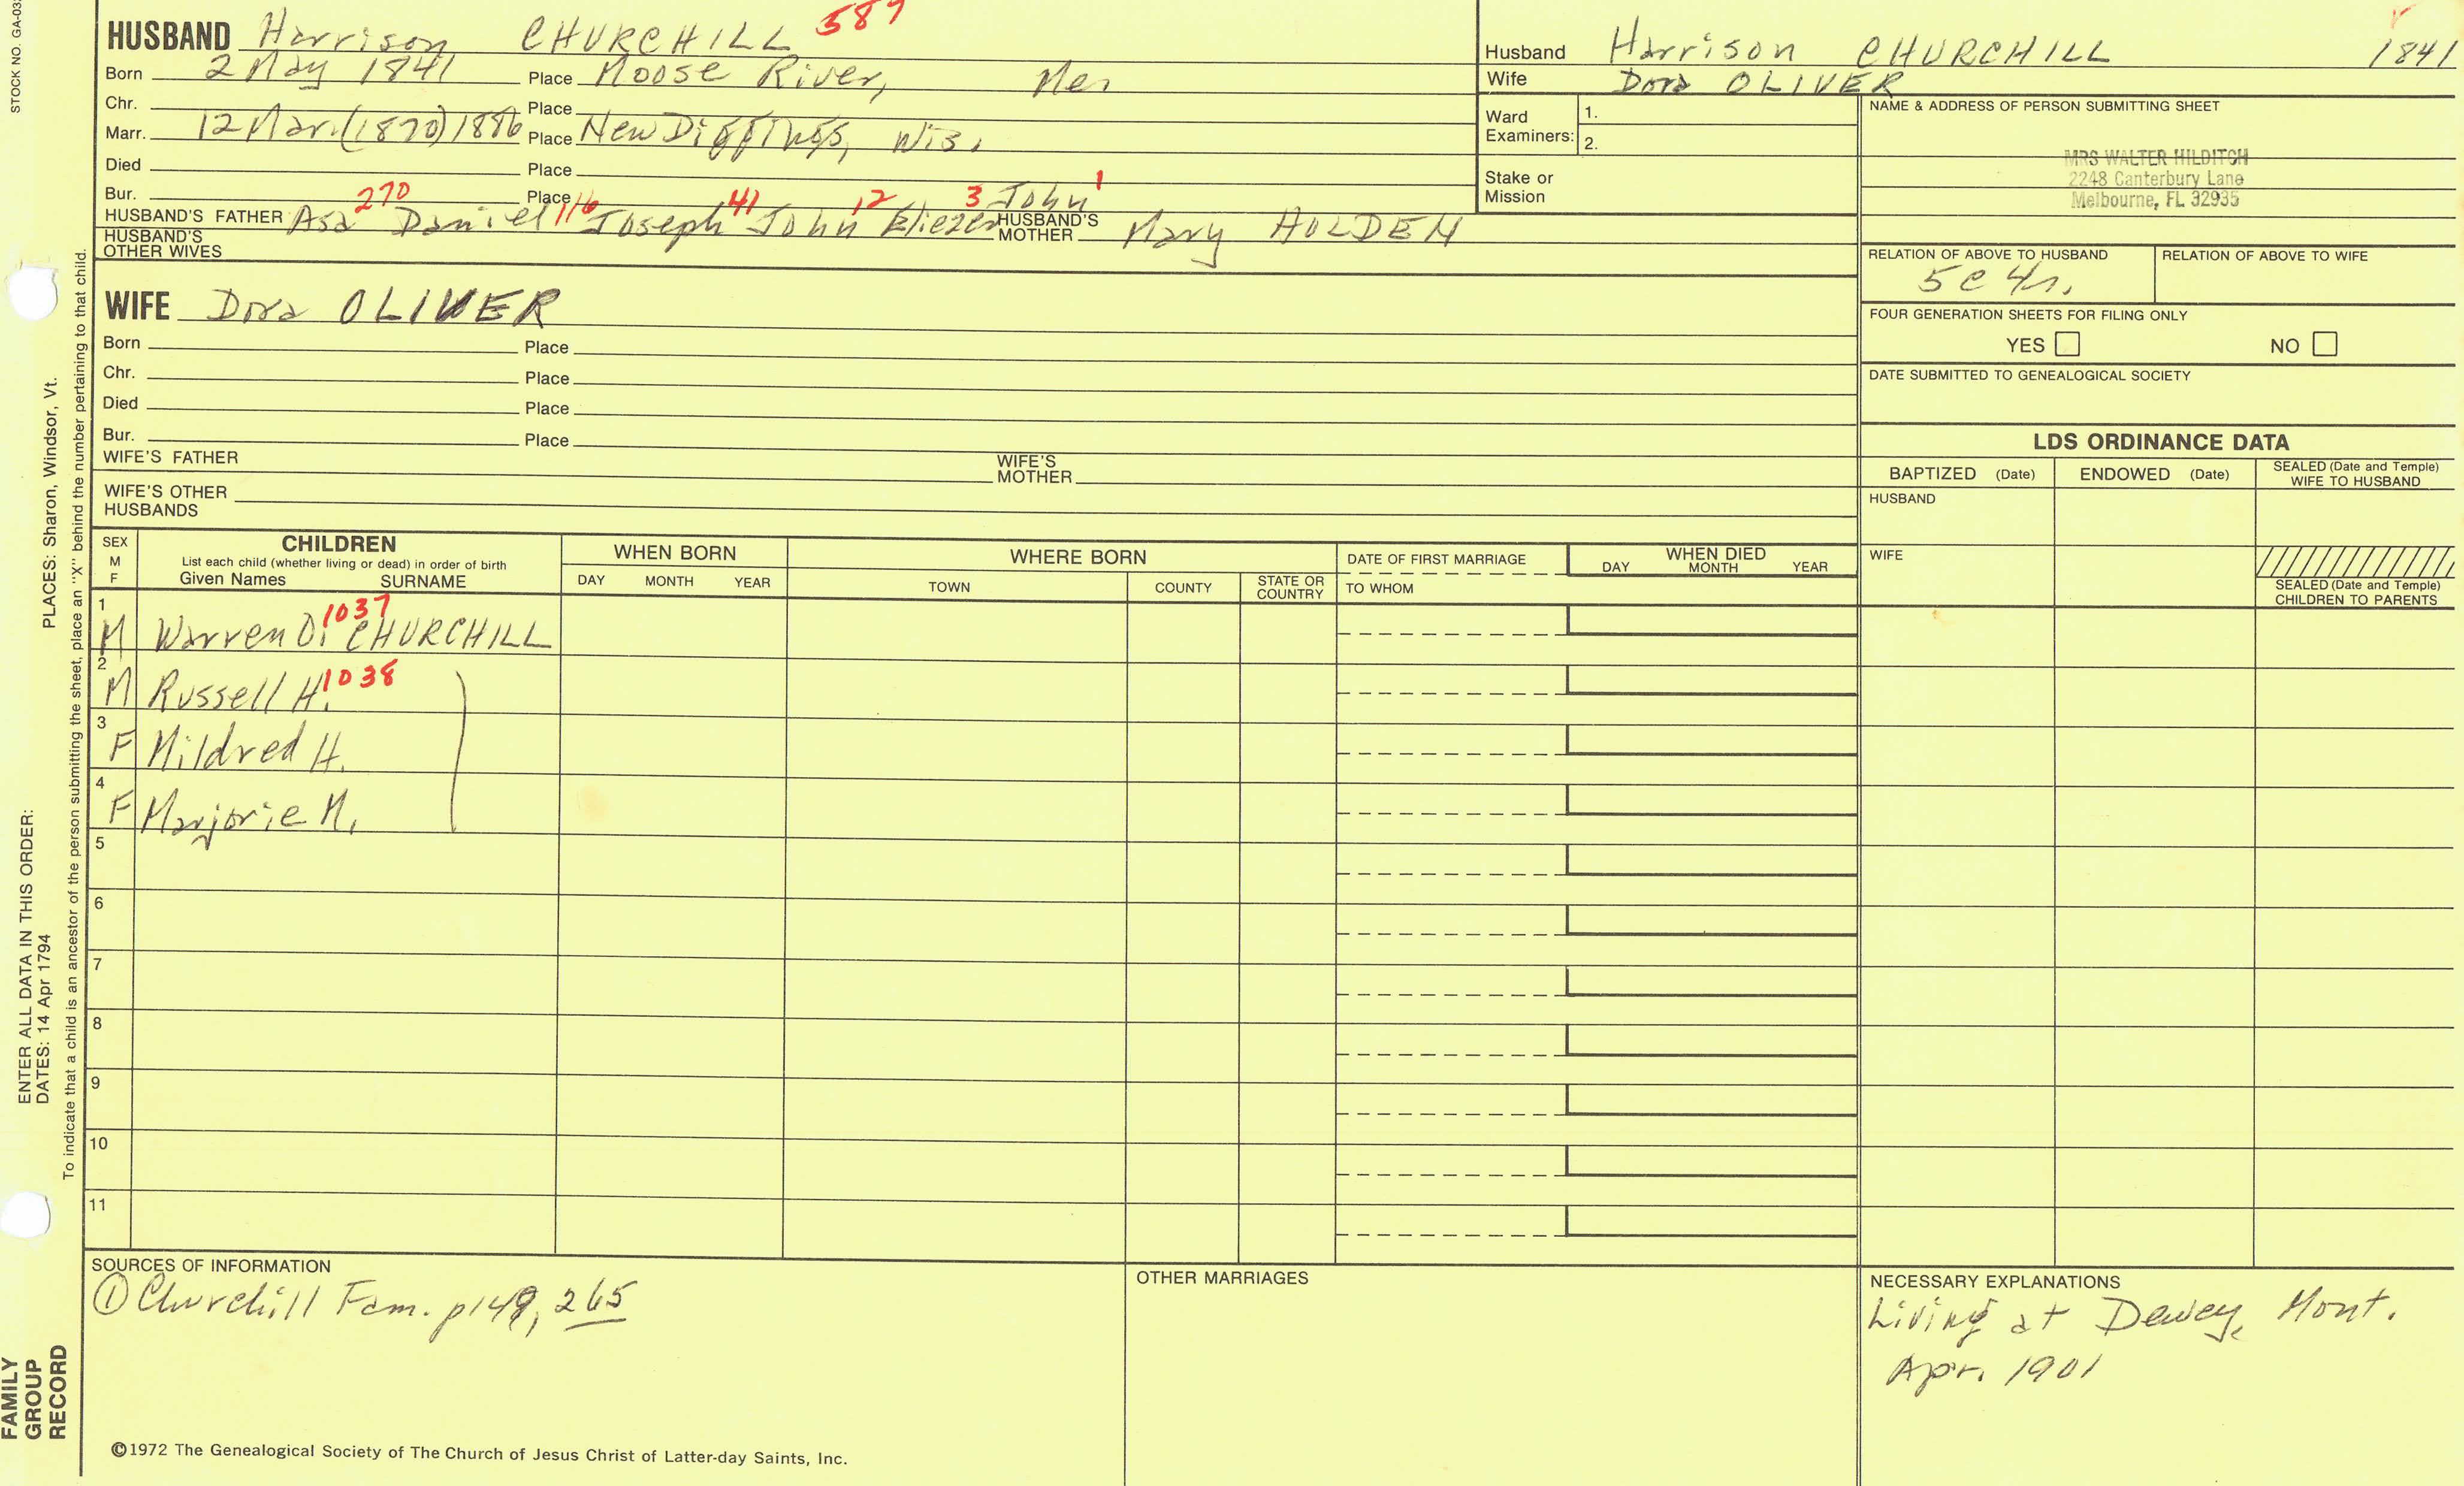 STOCK NO. GA-03
HUSBAND Harrison CHURCHILL 587
Born 2 May 1841 Place Moose River, Me.
Chr. Place
Marr. 12 Mar. (1870) 1886 Place New Diggings, Wis.
Died Place
Bur. Place
HUSBAND'S FATHER Asa 270 Daniel 116 Joseph 41 John 12 Eliezer 3 John 1 HUSBAND'S MOTHER Mary HOLDEN
HUSBAND'S OTHER WIVES
WIFE Dora OLIVER
Born Place
Chr. Place
Died Place
Bur. Place
WIFE'S FATHER WIFE'S MOTHER
WIFE'S OTHER HUSBANDS
Husband Harrison CHURCHILL 1841
Wife Dora OLIVER
Ward Examiners: 1.
2.
Stake or Mission
NAME & ADDRESS OF PERSON SUBMITTING SHEET
MRS WALTER HILDITCH
2248 Canterbury Lane
Melbourne, FL 32935
RELATION OF ABOVE TO HUSBAND RELATION OF ABOVE TO WIFE
5c 4r.
FOUR GENERATION SHEETS FOR FILING ONLY
YES NO
DATE SUBMITTED TO GENEALOGICAL SOCIETY
LDS ORDINANCE DATA
BAPTIZED (Date) ENDOWED (Date) SEALED (Date and Temple) WIFE TO HUSBAND
HUSBAND
WIFE
SEALED (Date and Temple) CHILDREN TO PARENTS
SEX M F
CHILDREN
List each child (whether living or dead) in order of birth
Given Names SURNAME
WHEN BORN
DAY MONTH YEAR
WHERE BORN
TOWN COUNTY STATE OR COUNTRY
DATE OF FIRST MARRIAGE
TO WHOM
WHEN DIED
DAY MONTH YEAR
1 M Warren O. 1037 CHURCHILL
2 M Russell H. 1038
3 F Mildred H.
4 F Marjorie M.
5
6
7
8
9
10
11
SOURCES OF INFORMATION
① Churchill Fam. p149, 265
OTHER MARRIAGES
NECESSARY EXPLANATIONS
Living at Dewey, Mont.
Apr. 1901
©1972 The Genealogical Society of The Church of Jesus Christ of Latter-day Saints, Inc.
FAMILY GROUP RECORD
ENTER ALL DATA IN THIS ORDER:
DATES: 14 Apr 1794 PLACES: Sharon, Windsor, Vt.
To indicate that a child is an ancestor of the person submitting the sheet, place an "X" behind the number pertaining to that child.